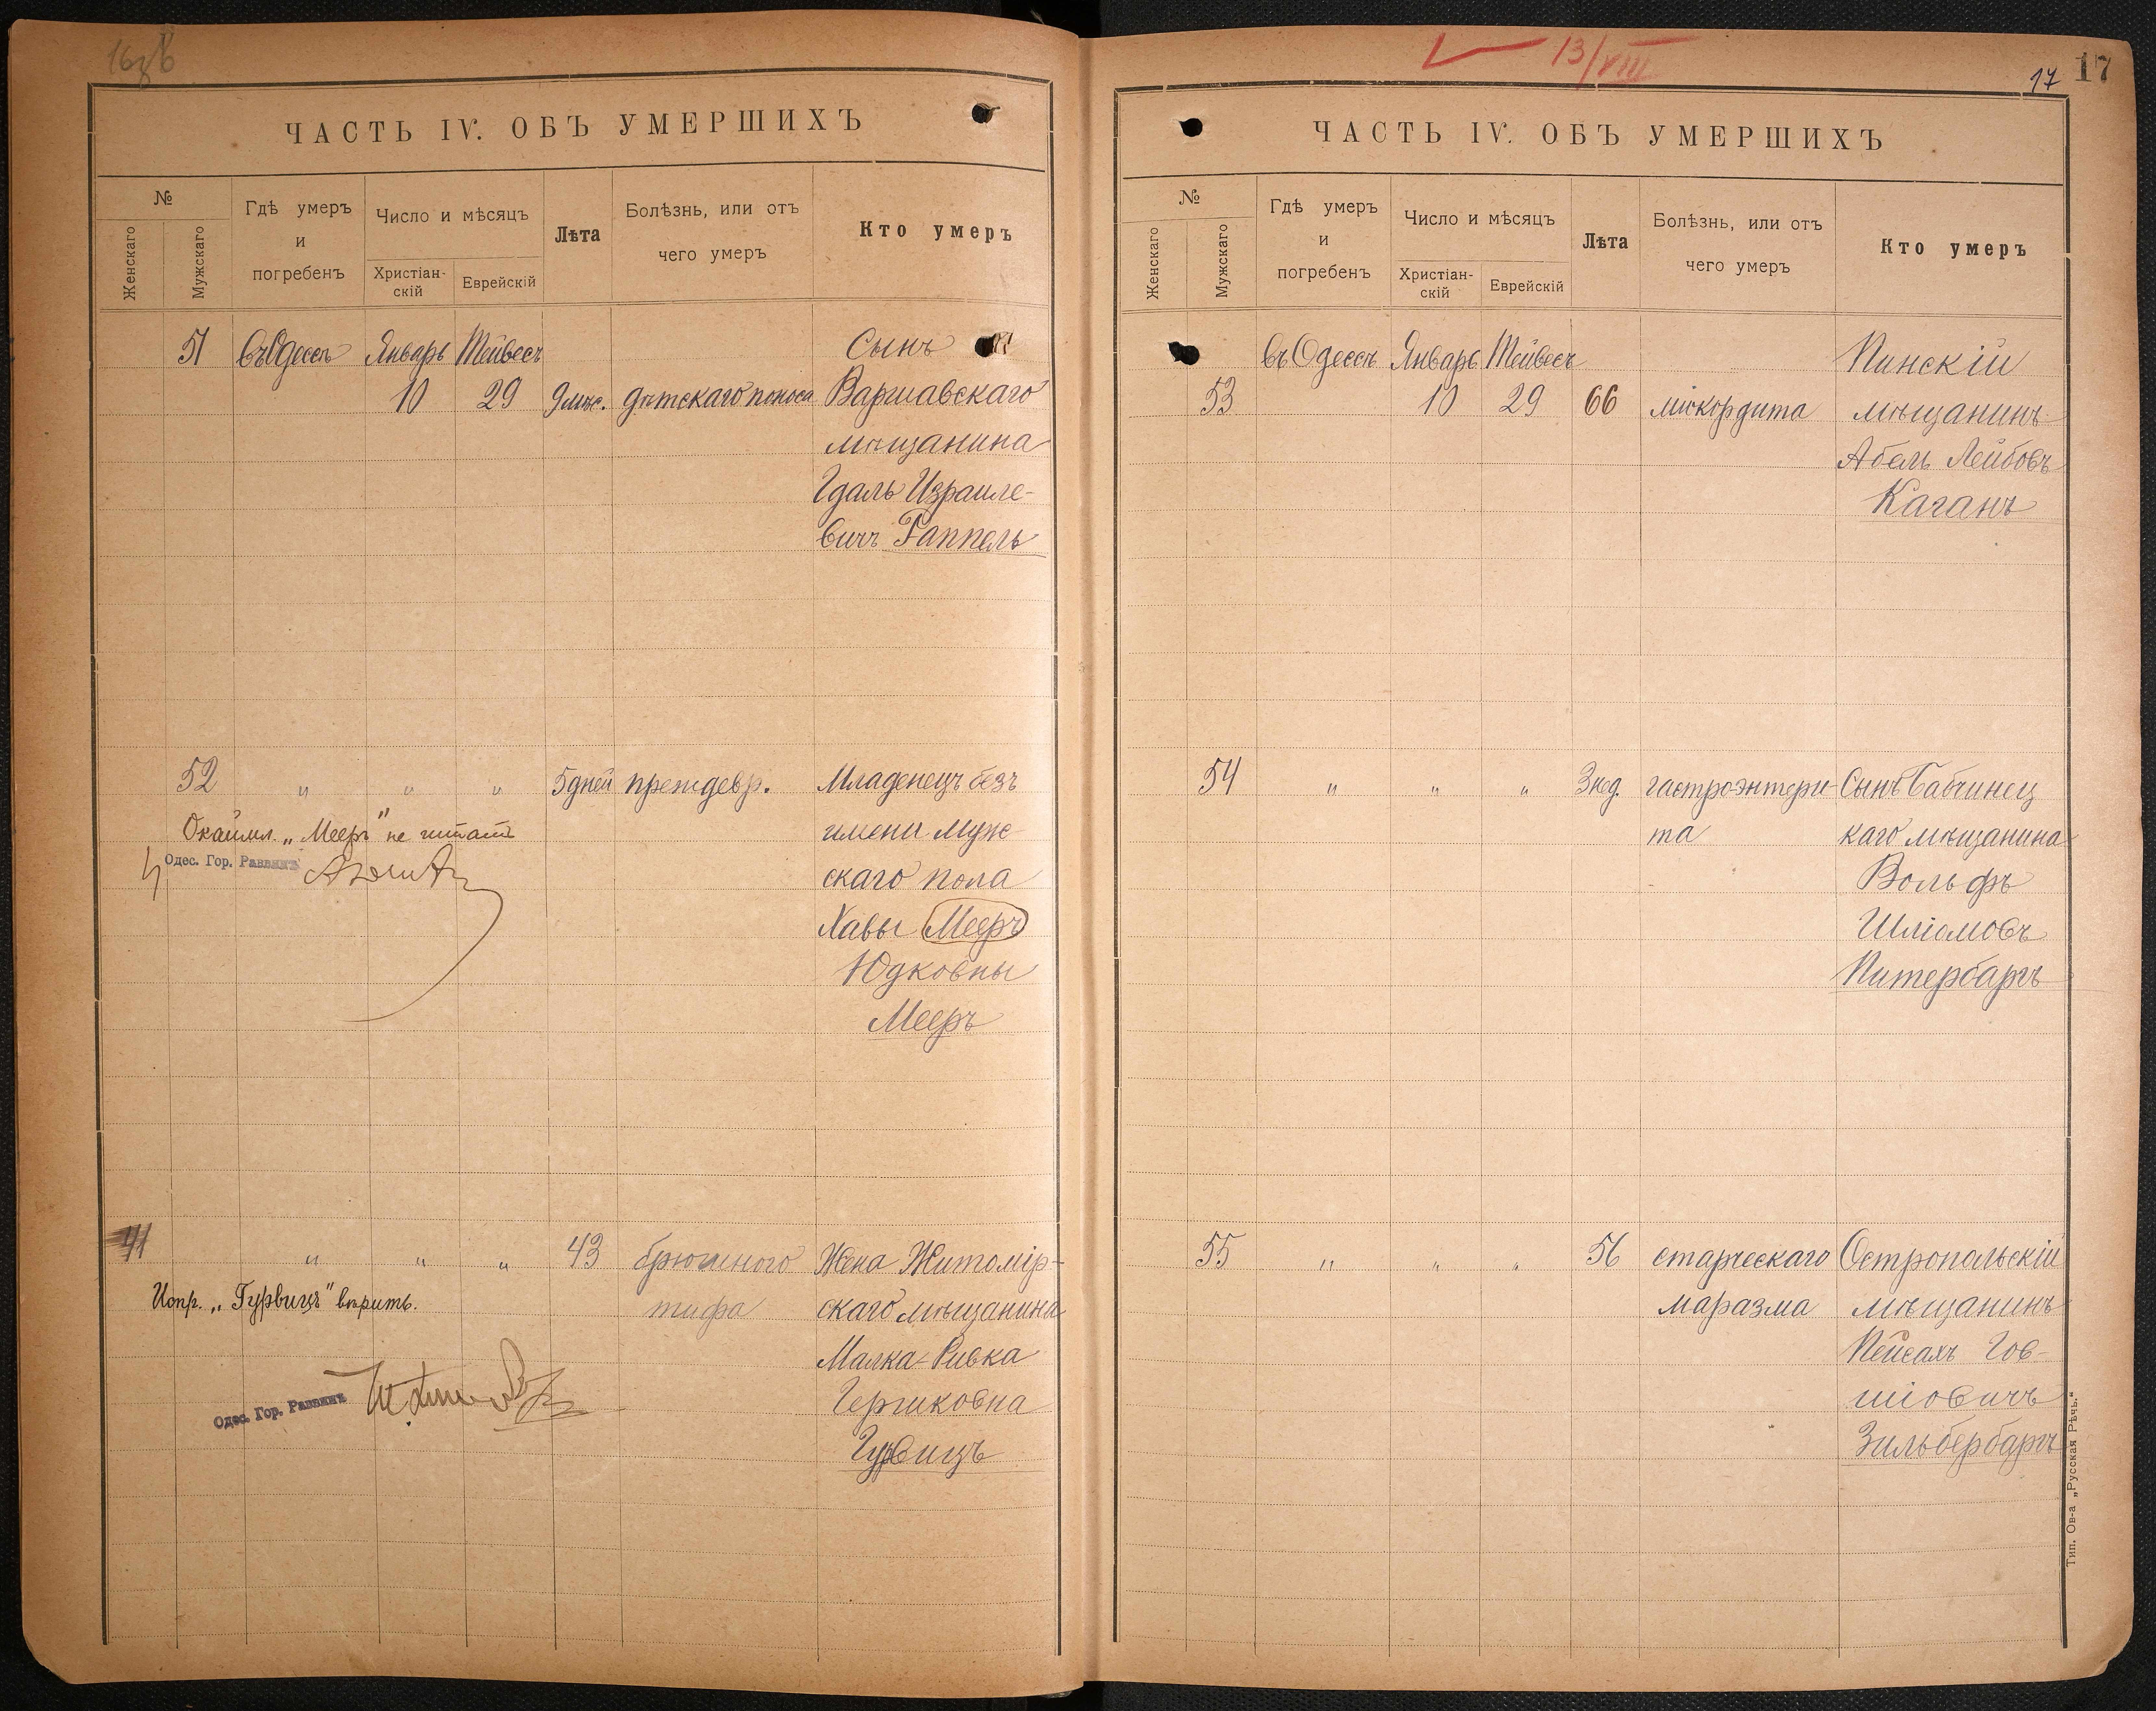 13/VIII
17
17
ЧАСТЬ IV. ОБЪ УМЕРШИХЪ
№
Женскаго
Мужскаго
Гдѣ умеръ
и
погребенъ
Число и мѣсяцъ
Христіан-
скій
Еврейскій
Лѣта
Болѣзнь, или отъ
чего умеръ
Кто умеръ
51 въ Одессѣ Январь Тейвесъ Сынъ
10 29 9 мѣс. дѣтскаго поноса Варшавскаго
мѣщанина
Гдаль Израиле-
вичъ Гаппель
52 „ „ „ 5 дней преждевр. Младенецъ безъ
Окаймл. „Мееръ" не читать имени муж-
Одес. Гор. Раввинъ
скаго пола
Хавы Мееръ
Юдковны
Мееръ
41 „ „ „ 43 брюшного Жена Житомір-
Испр. „Гурвицъ" вѣрить. тифа скаго мѣщанина
Малка-Ривка
Одес. Гор. Раввинъ
Гершковна
Гурвицъ
ЧАСТЬ IV. ОБЪ УМЕРШИХЪ
№
Женскаго
Мужскаго
Гдѣ умеръ
и
погребенъ
Число и мѣсяцъ
Христіан-
скій
Еврейскій
Лѣта
Болѣзнь, или отъ
чего умеръ
Кто умеръ
въ Одессѣ Январь Тейвесъ Пинскій
53 10 29 66 міокордита мѣщанинъ
Абель Лейбовъ
Каганъ
54 „ „ „ 3 нед. гастроэнтери- Сынъ Бабчинец
та каго мѣщанина
Вольфъ
Шліомовъ
Питербаргъ
55 „ „ „ 56 старческаго Остропольскій
маразма мѣщанинъ
Пейсахъ Гов-
шіовичъ
Зильбербаргъ
Тип. Ов-а „Русская Рѣчь."